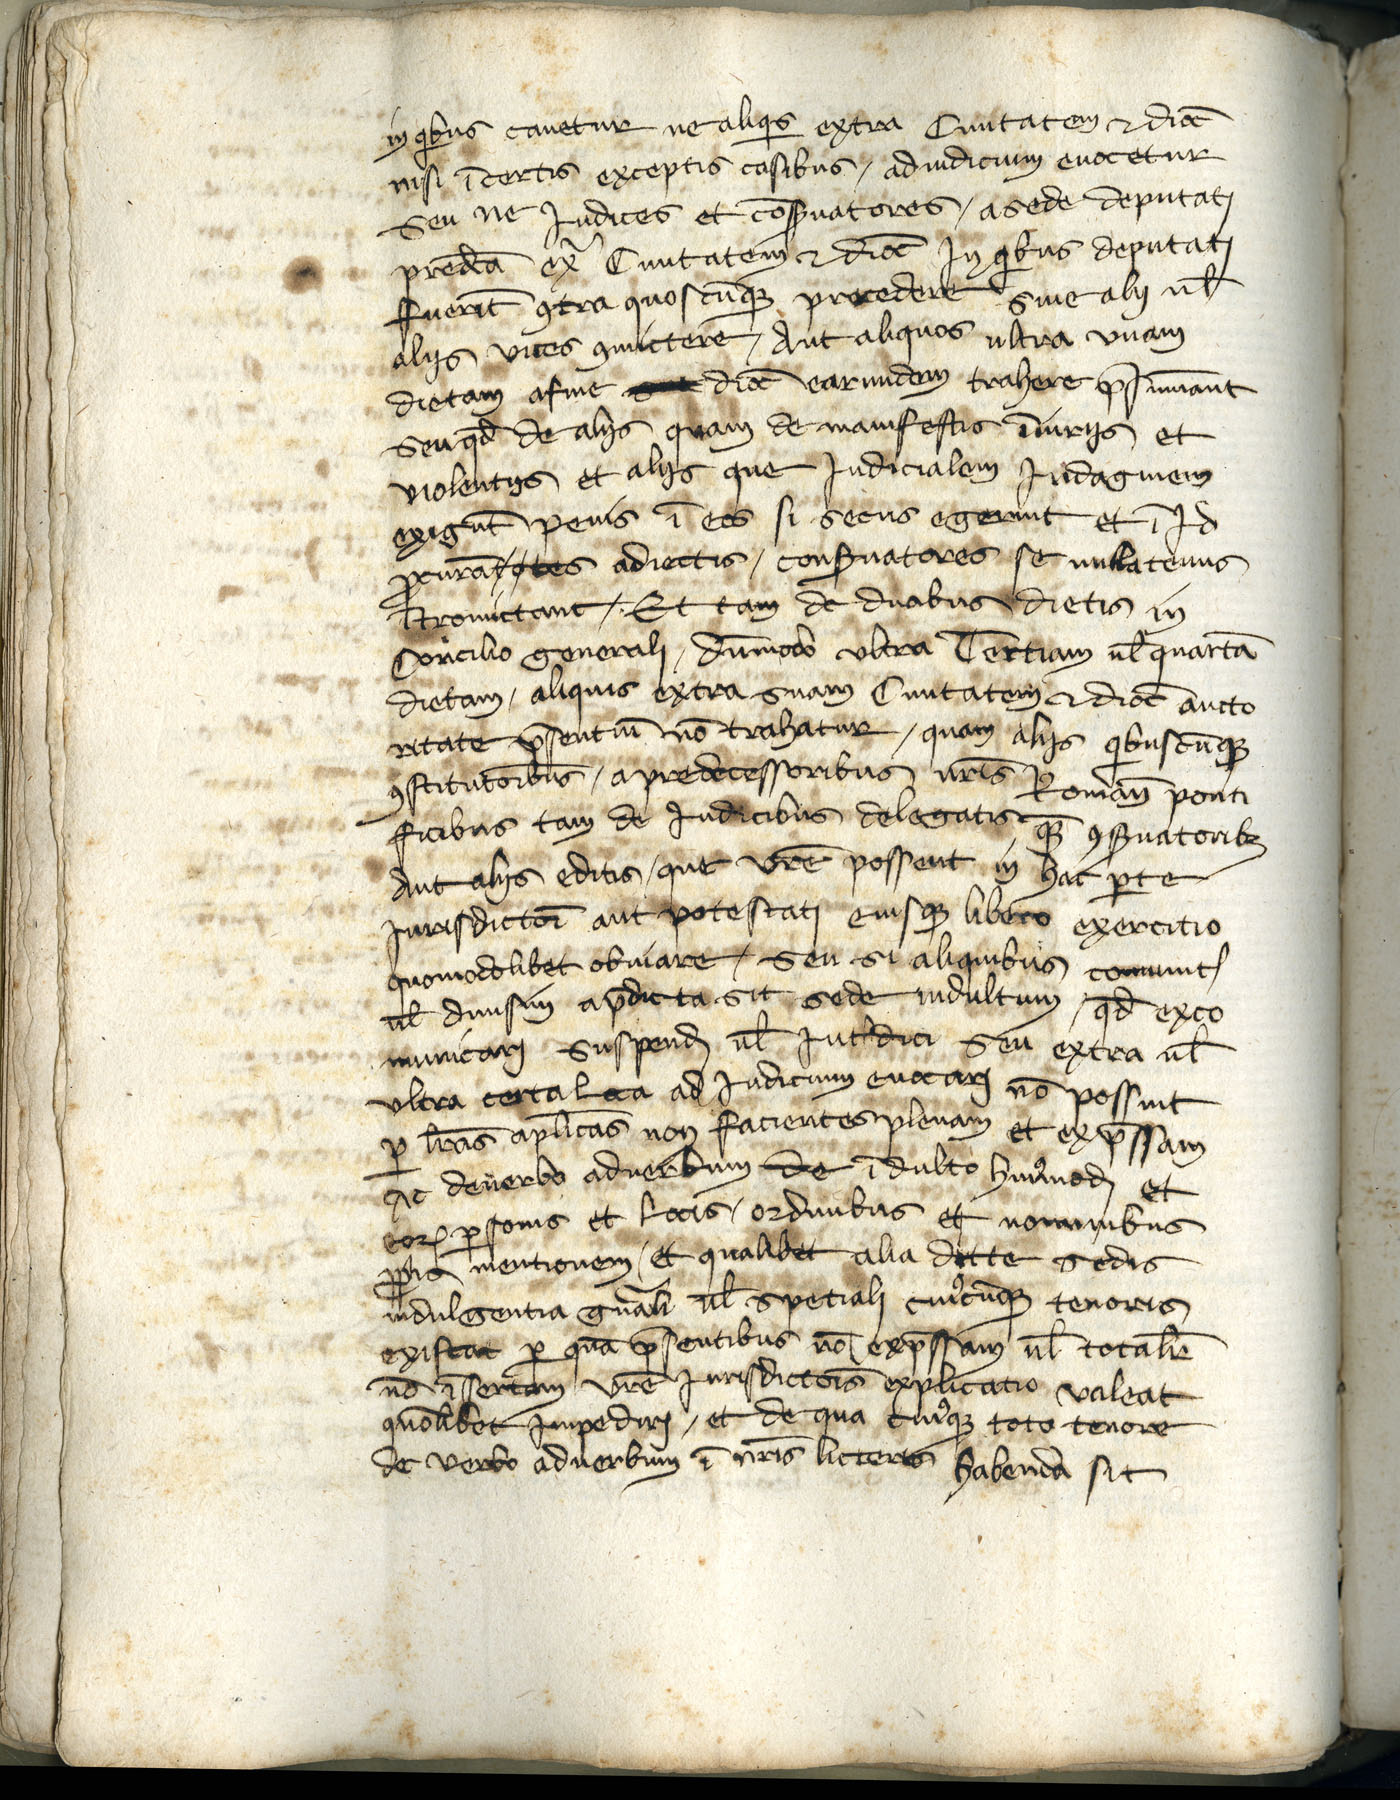 in qbus cauetur ne aliqs extra Ciuitatem & dioc
nisi i certis exceptis casibus / ad iudicium euocetur
seu ne Judices et coseruatores / a sede deputati
predcta ex Ciuitatem & dioc In qbus deputati
fuerit 9tra quoscuq procedere siue alij ul
alijs uices 9mictere / Aut aliquos ultra vnam
dietam a fine dioc earumdem trahere psumant
seu qd de alijs quam de manifestis iniurijs et
violentijs et alijs que Judicialem Indaginem
exigut penis i eos si secus egerint et i Id
procurates adiectis / conseruatores se nullatenus
Itromictant / Et tam de duabus dietis in
Concilio generali / dumodo ultra Tertiam ul quarta
dietam / aliquis extra suam Ciuitatem & dioc aucto
ritate psentiu no trahatur / quam alijs qbuscuq
9stitutoibus / a predecessoribus nris Roman ponti
ficibus tam de Judicibus delegatis q 9seruatorib
Aut alijs editis / que vre possent in hac parte
Jurisdictoi aut potestati eiusq libero exercitio
quomodolibet obuiare / seu si aliquibus comunit
ul diuisim a pdicta sit sede indultum / qd exco
municari suspendi ul Intdici seu extra ul
ultra certa loca ad Judicium euocari no possint
p lras aplicas non facientes plenam et expssam
Ac de uerbo aduerbum de idulto huiomodi et
eor psonis et locis / ordinibus et nominibus
ppris mentionem / et qualibet alia dicte sedis
indulgentia gnali ul speciali cuiocuq tenoris
existat p qua psentibus no expssam ul totalir
no isertam vre Jurisdictois explicatio ualeat
quolibet Impediri / et de qua cuiosq toto tenore
de verbo aduerbum i nris licteris habenda sit